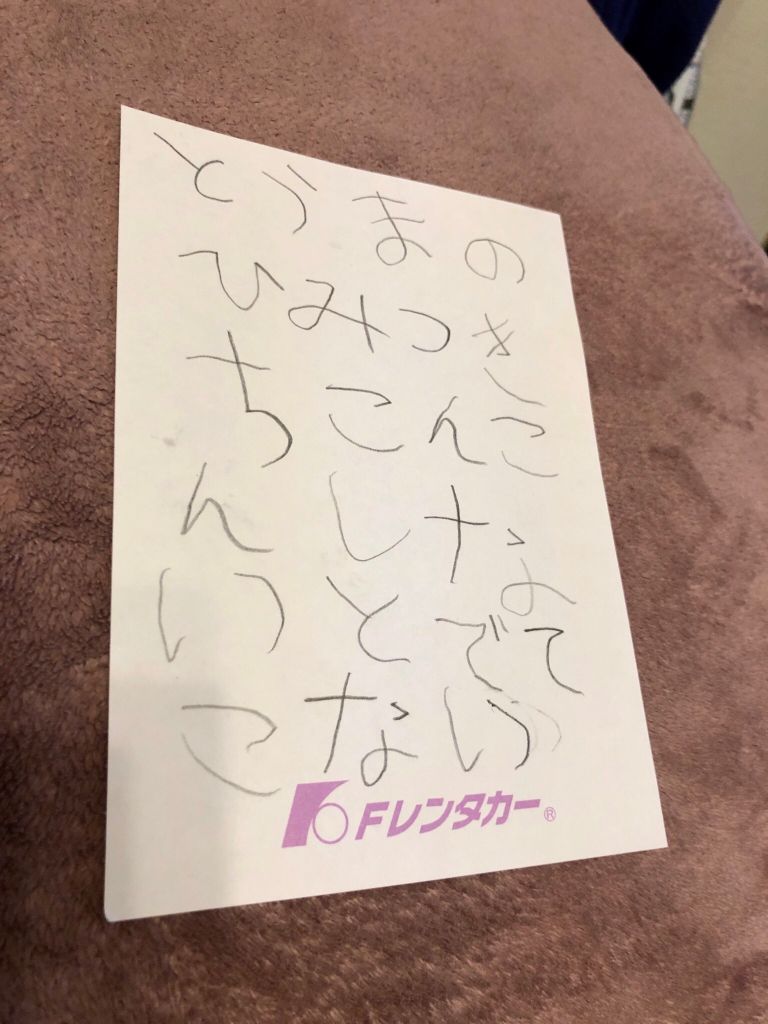 とうまの
ひみつき
ちこんこ
んしな
いとでて
こない
Fレンタカー®